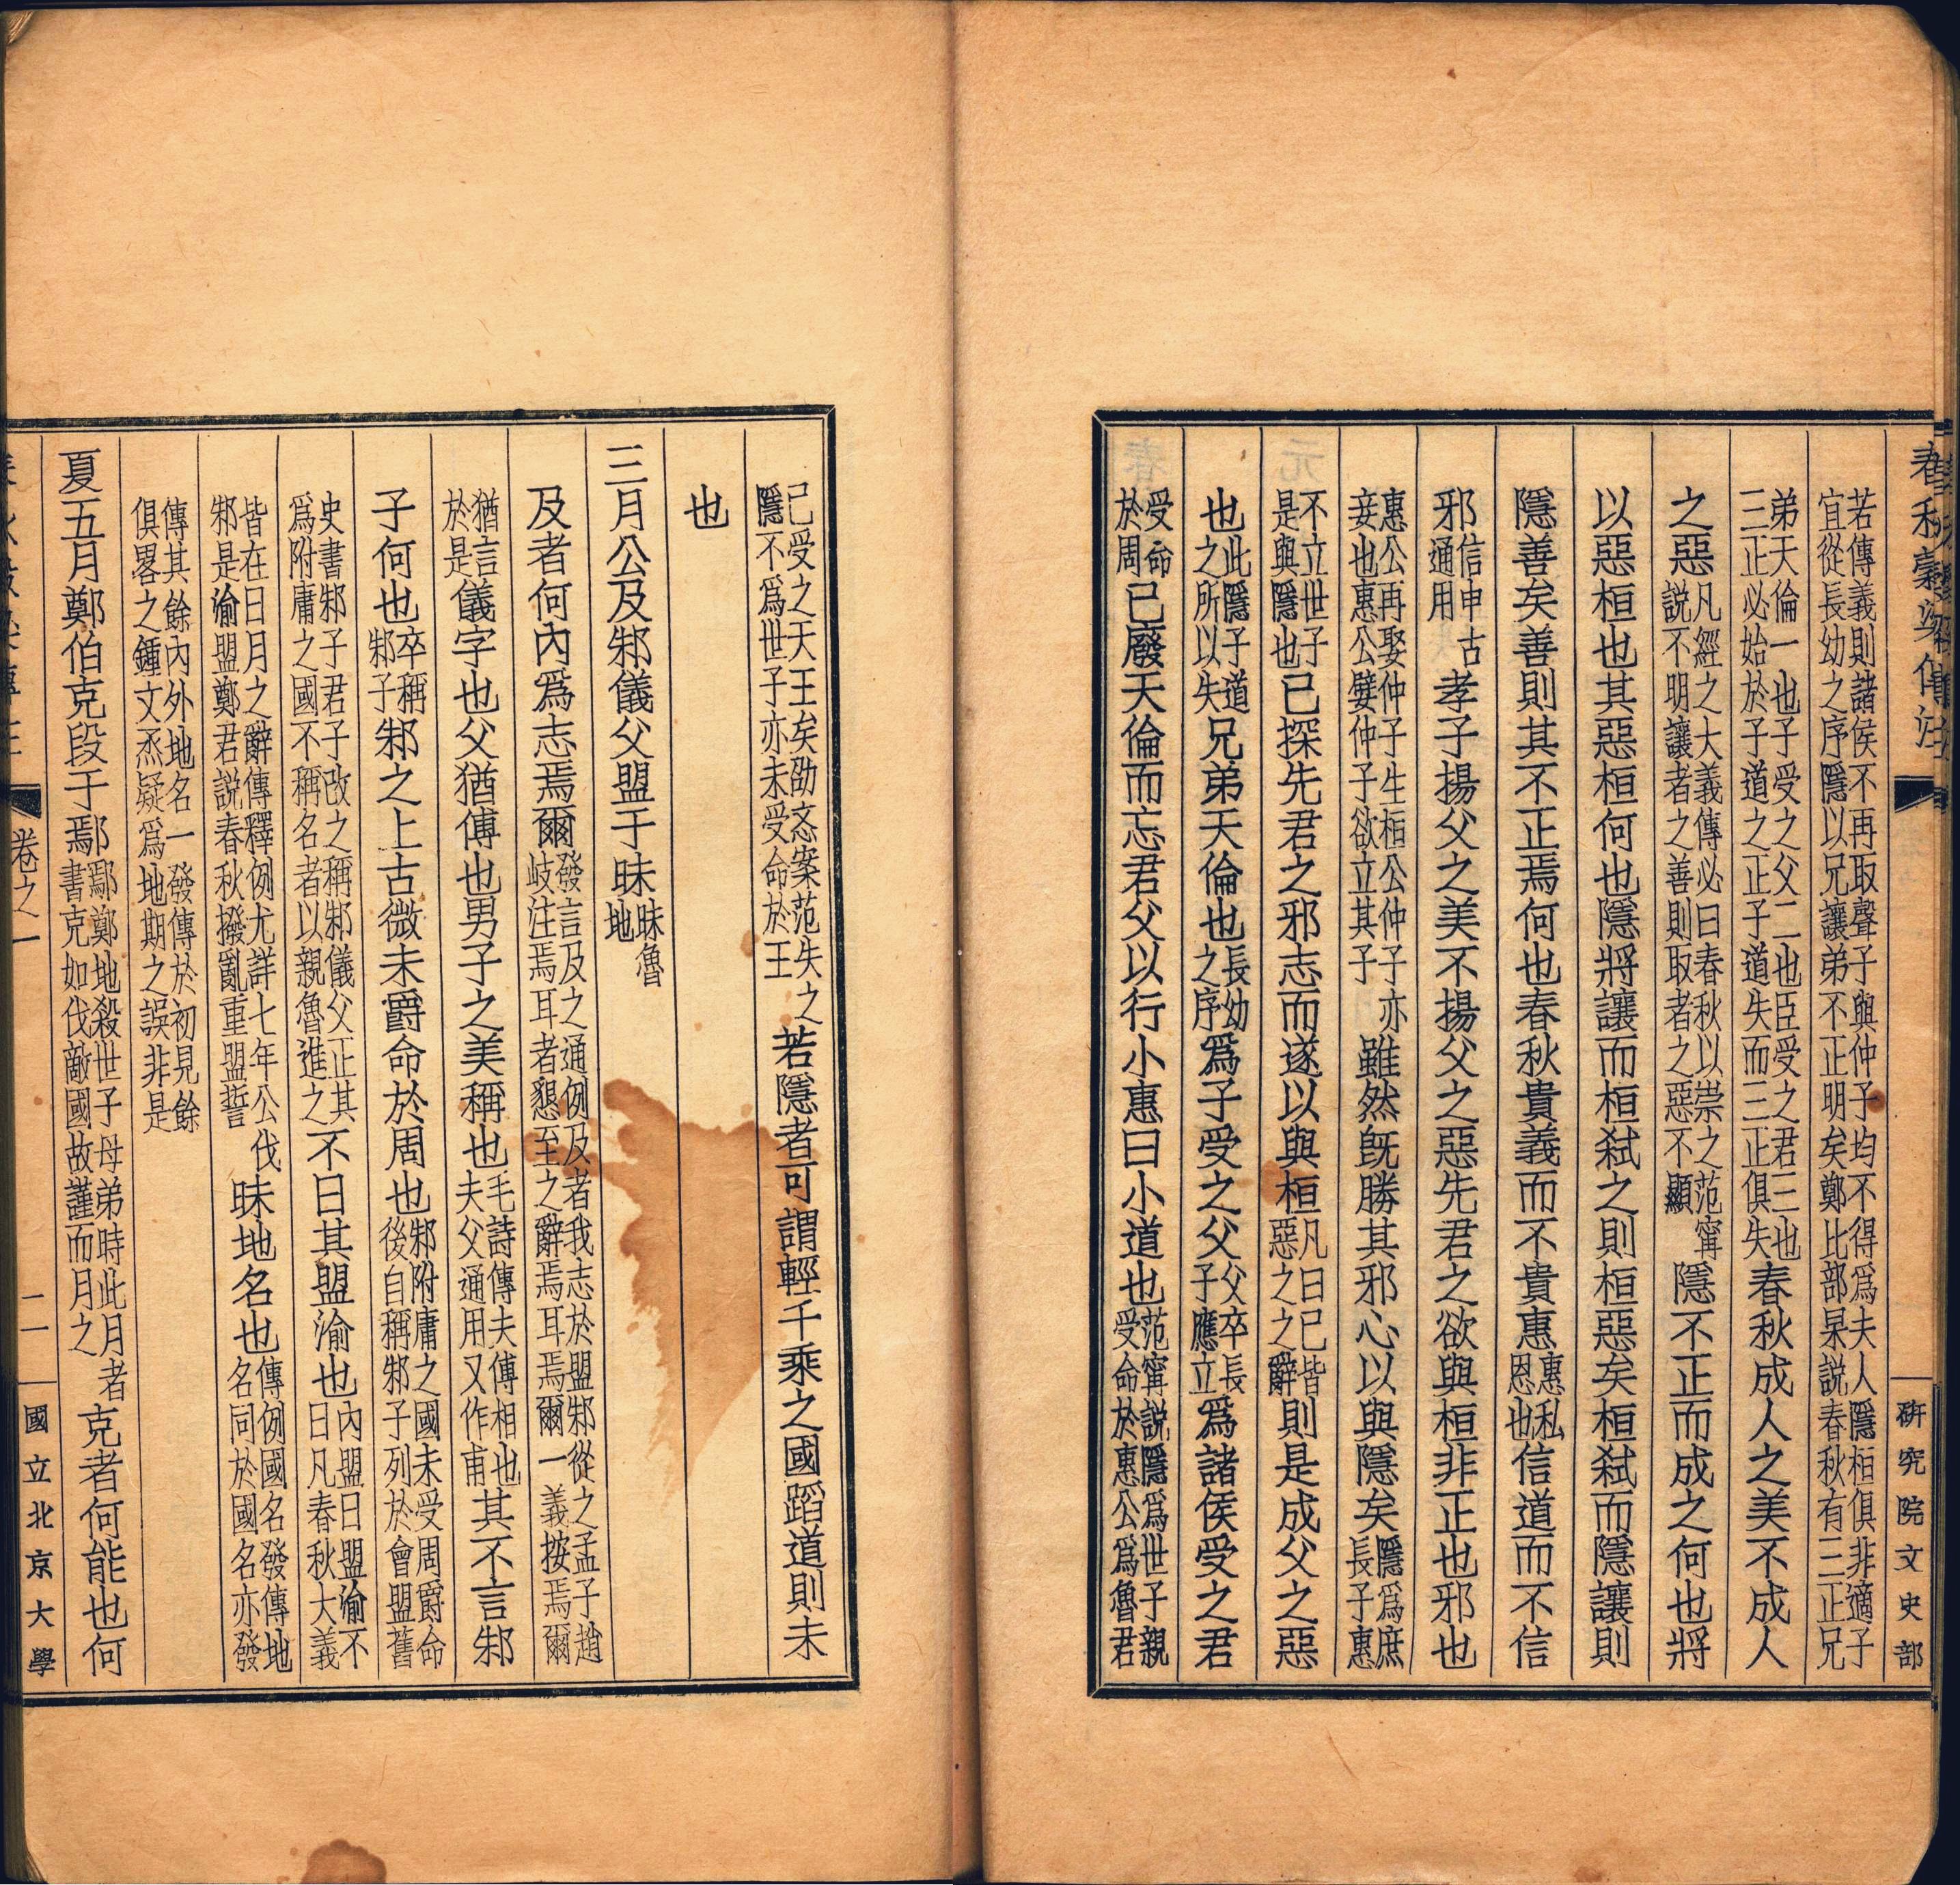 春秋穀梁傳注
研究院文史部
若傳義則諸侯不再取聲子與仲子均不得爲夫人隱桓俱非適子
宜從長幼之序隱以兄讓弟不正明矣鄭比部杲説春秋有三正兄
弟天倫一也子受之父二也臣受之君三也
三正必始於子道之正子道失而三正俱失
春秋成人之美不成人
之惡
凡經之大義傳必曰春秋以崇之范甯
説不明讓者之善則取者之惡不顯
隱不正而成之何也將
以惡桓也其惡桓何也隱將讓而桓弒之則桓惡矣桓弒而隱讓則
隱善矣善則其不正焉何也春秋貴義而不貴惠
惠私
恩也
信道而不信
邪
信申古
通用
孝子揚父之美不揚父之惡先君之欲與桓非正也邪也
惠公再娶仲子生桓公仲子亦
妾也惠公嬖仲子欲立其子
雖然旣勝其邪心以與隱矣
隱爲庶
長子惠
不立世子
是與隱也
已探先君之邪志而遂以與桓
凡曰已皆
惡之之辭
則是成父之惡
也
此隱子道
之所以失
兄弟天倫也
長幼
之序
爲子受之父
父卒長
子應立
爲諸侯受之君
受命
於周
已廢天倫而忘君父以行小惠曰小道也
范甯説隱爲世子親
受命於惠公爲魯君
已受之天王矣劭忞案范失之
隱不爲世子亦未受命於王
若隱者可謂輕千乘之國蹈道則未
也
三月公及邾儀父盟于昧
昧魯
地
及者何內爲志焉爾
發言及之通例及者我志於盟邾從之孟子趙
岐注焉耳者懇至之辭焉耳焉爾一義按焉爾
猶言
於是
儀字也父猶傅也男子之美稱也
毛詩傳夫傅相也
夫父通用又作甫
其不言邾
子何也
卒稱
邾子
邾之上古微未爵命於周也
邾附庸之國未受周爵命
後自稱邾子列於會盟舊
史書邾子君子改之稱邾儀父正其
爲附庸之國不稱名者以親魯進之
不日其盟渝也
內盟日盟渝不
日凡春秋大義
皆在日月之辭傳釋例尤詳七年公伐
邾是渝盟鄭君説春秋撥亂重盟誓
昧地名也
傳例國名發傳地
名同於國名亦發
傳其餘內外地名一發傳於初見餘
俱畧之鍾文烝疑爲地期之誤非是
夏五月鄭伯克段于鄢
鄢鄭地殺世子母弟時此月者
書克如伐敵國故謹而月之
克者何能也何
卷之一
二
國立北京大學